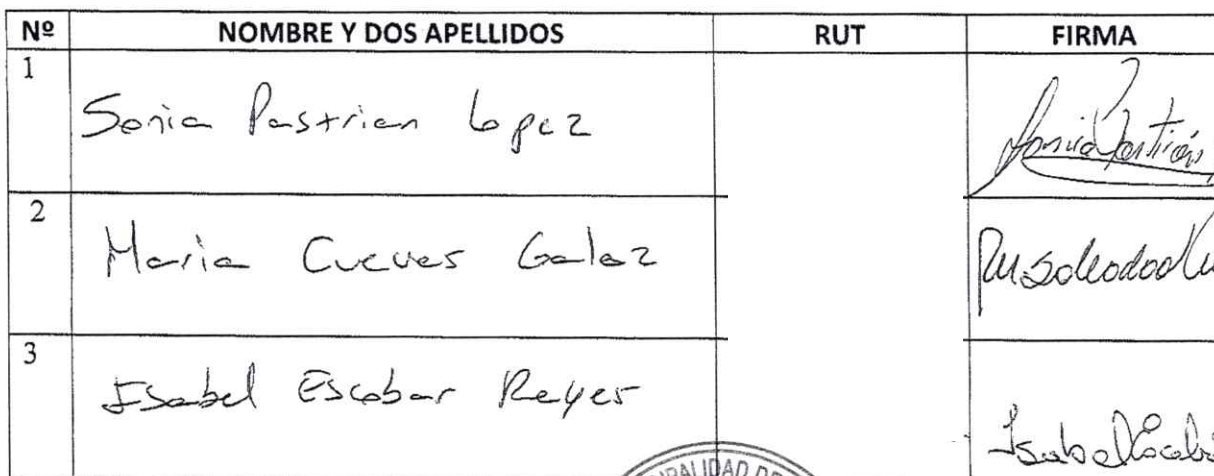 Nº NOMBRE Y DOS APELLIDOS RUT FIRMA
1 Sonia Pastrian Lopez Sonia Pastrián
2 Maria Cuevas Galaz M. Soledad Cu
3 Isabel Escobar Reyes Isabel Escoba
IPALIDAD DE